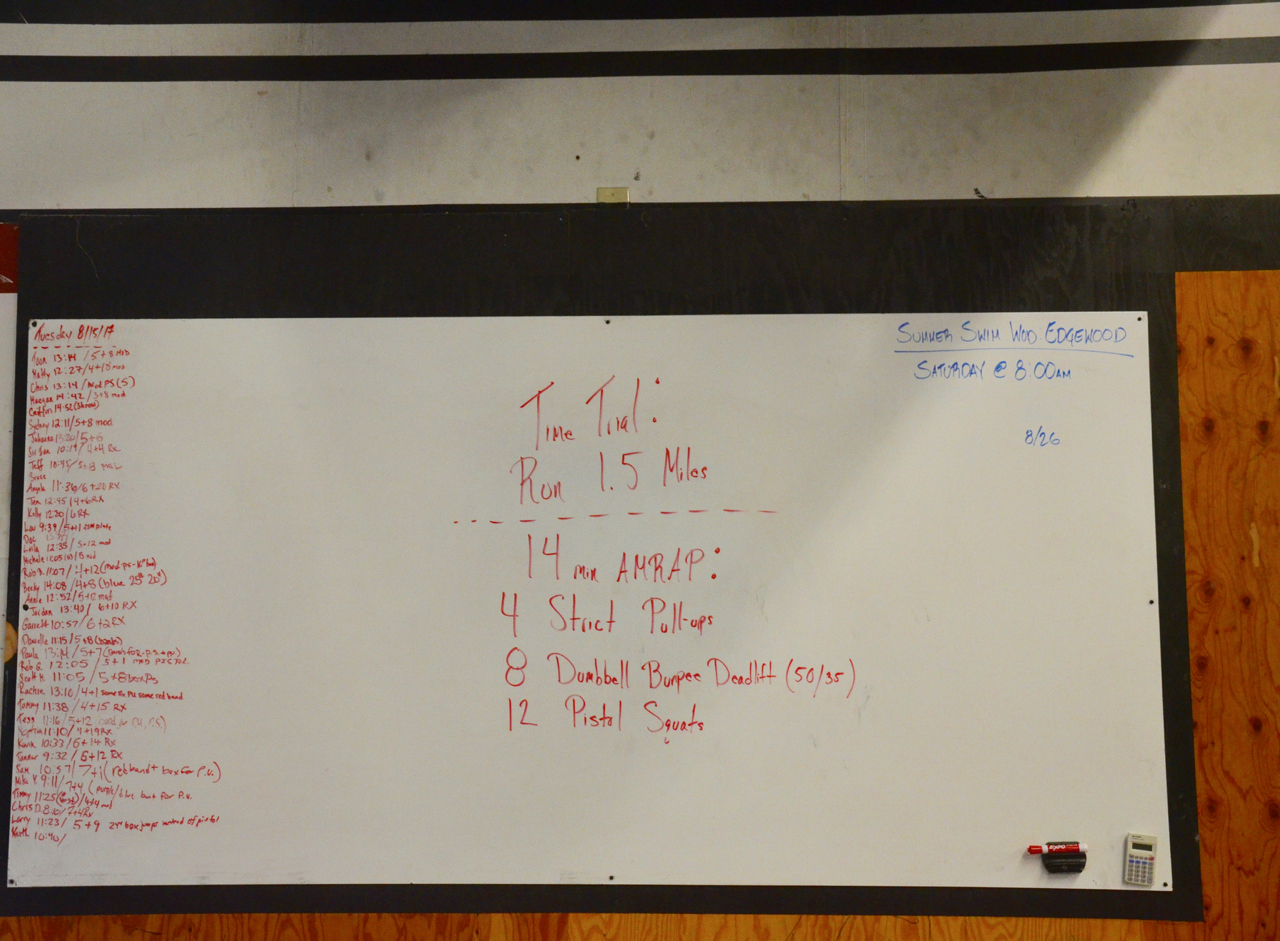 Tuesday 8/15/17
13:14 / 5+8 MOD
12:27/4+18 mod
Chris 13:14 / Mod PS (5)
Maegan 14:42 / 5+8 mod
Caitlin 14:52
Sydney 12:11/5+8 mod
Johanna 13:20/5+6
10:19/ 4+4 Rx
Jeff 10:45/5+8
Angela 11:36/6+20 RX
12:45/4+6RX
Kelly 12:20/6RX
9:39/5+1
Doc
Leila 12:35/5+12 mod
Michele 11:05
11:07/ 4+12 (mod ps-
Becky 14:08/4+8 (blue 25# 20")
12:52/5+8 mod
Jordan 13:40/ 6+10 RX
Garrett 10:57/6+2RX
Danielle 11:15/5+8
Paula 13:14/5+7
Rob G. 12:05 / 5+1 mod
Scott H. 11:05 / 5+8
Rachie 13:10/4+1 same red band
Tommy 11:38/4+15 RX
Tess 11:16/5+12
Sophia 11:10/4+19Rx
10:33/6+14 Rx
Tanner 9:32/6+12 RX
Sam 10:57/7+1 (red band + box for P.U.)
Mike Y. 9:11/7+4 ( purple/blue but for P.U.
Timmy 11:25 /4+4 mod
Chris D. 7+4Rx
Larry 11:23/ 5+9 24" box jumps instead of pistol
Keith 10:40/
Time Tiral:
Run 1.5 Miles
14 min AMRAP:
4 Strict Pull-ups
8 Dumbbell Burpee Deadlift (50/35)
12 Pistol Squats
Summer Swim Wod Edgewood
Saturday @ 8:00am
8/26
EXPO